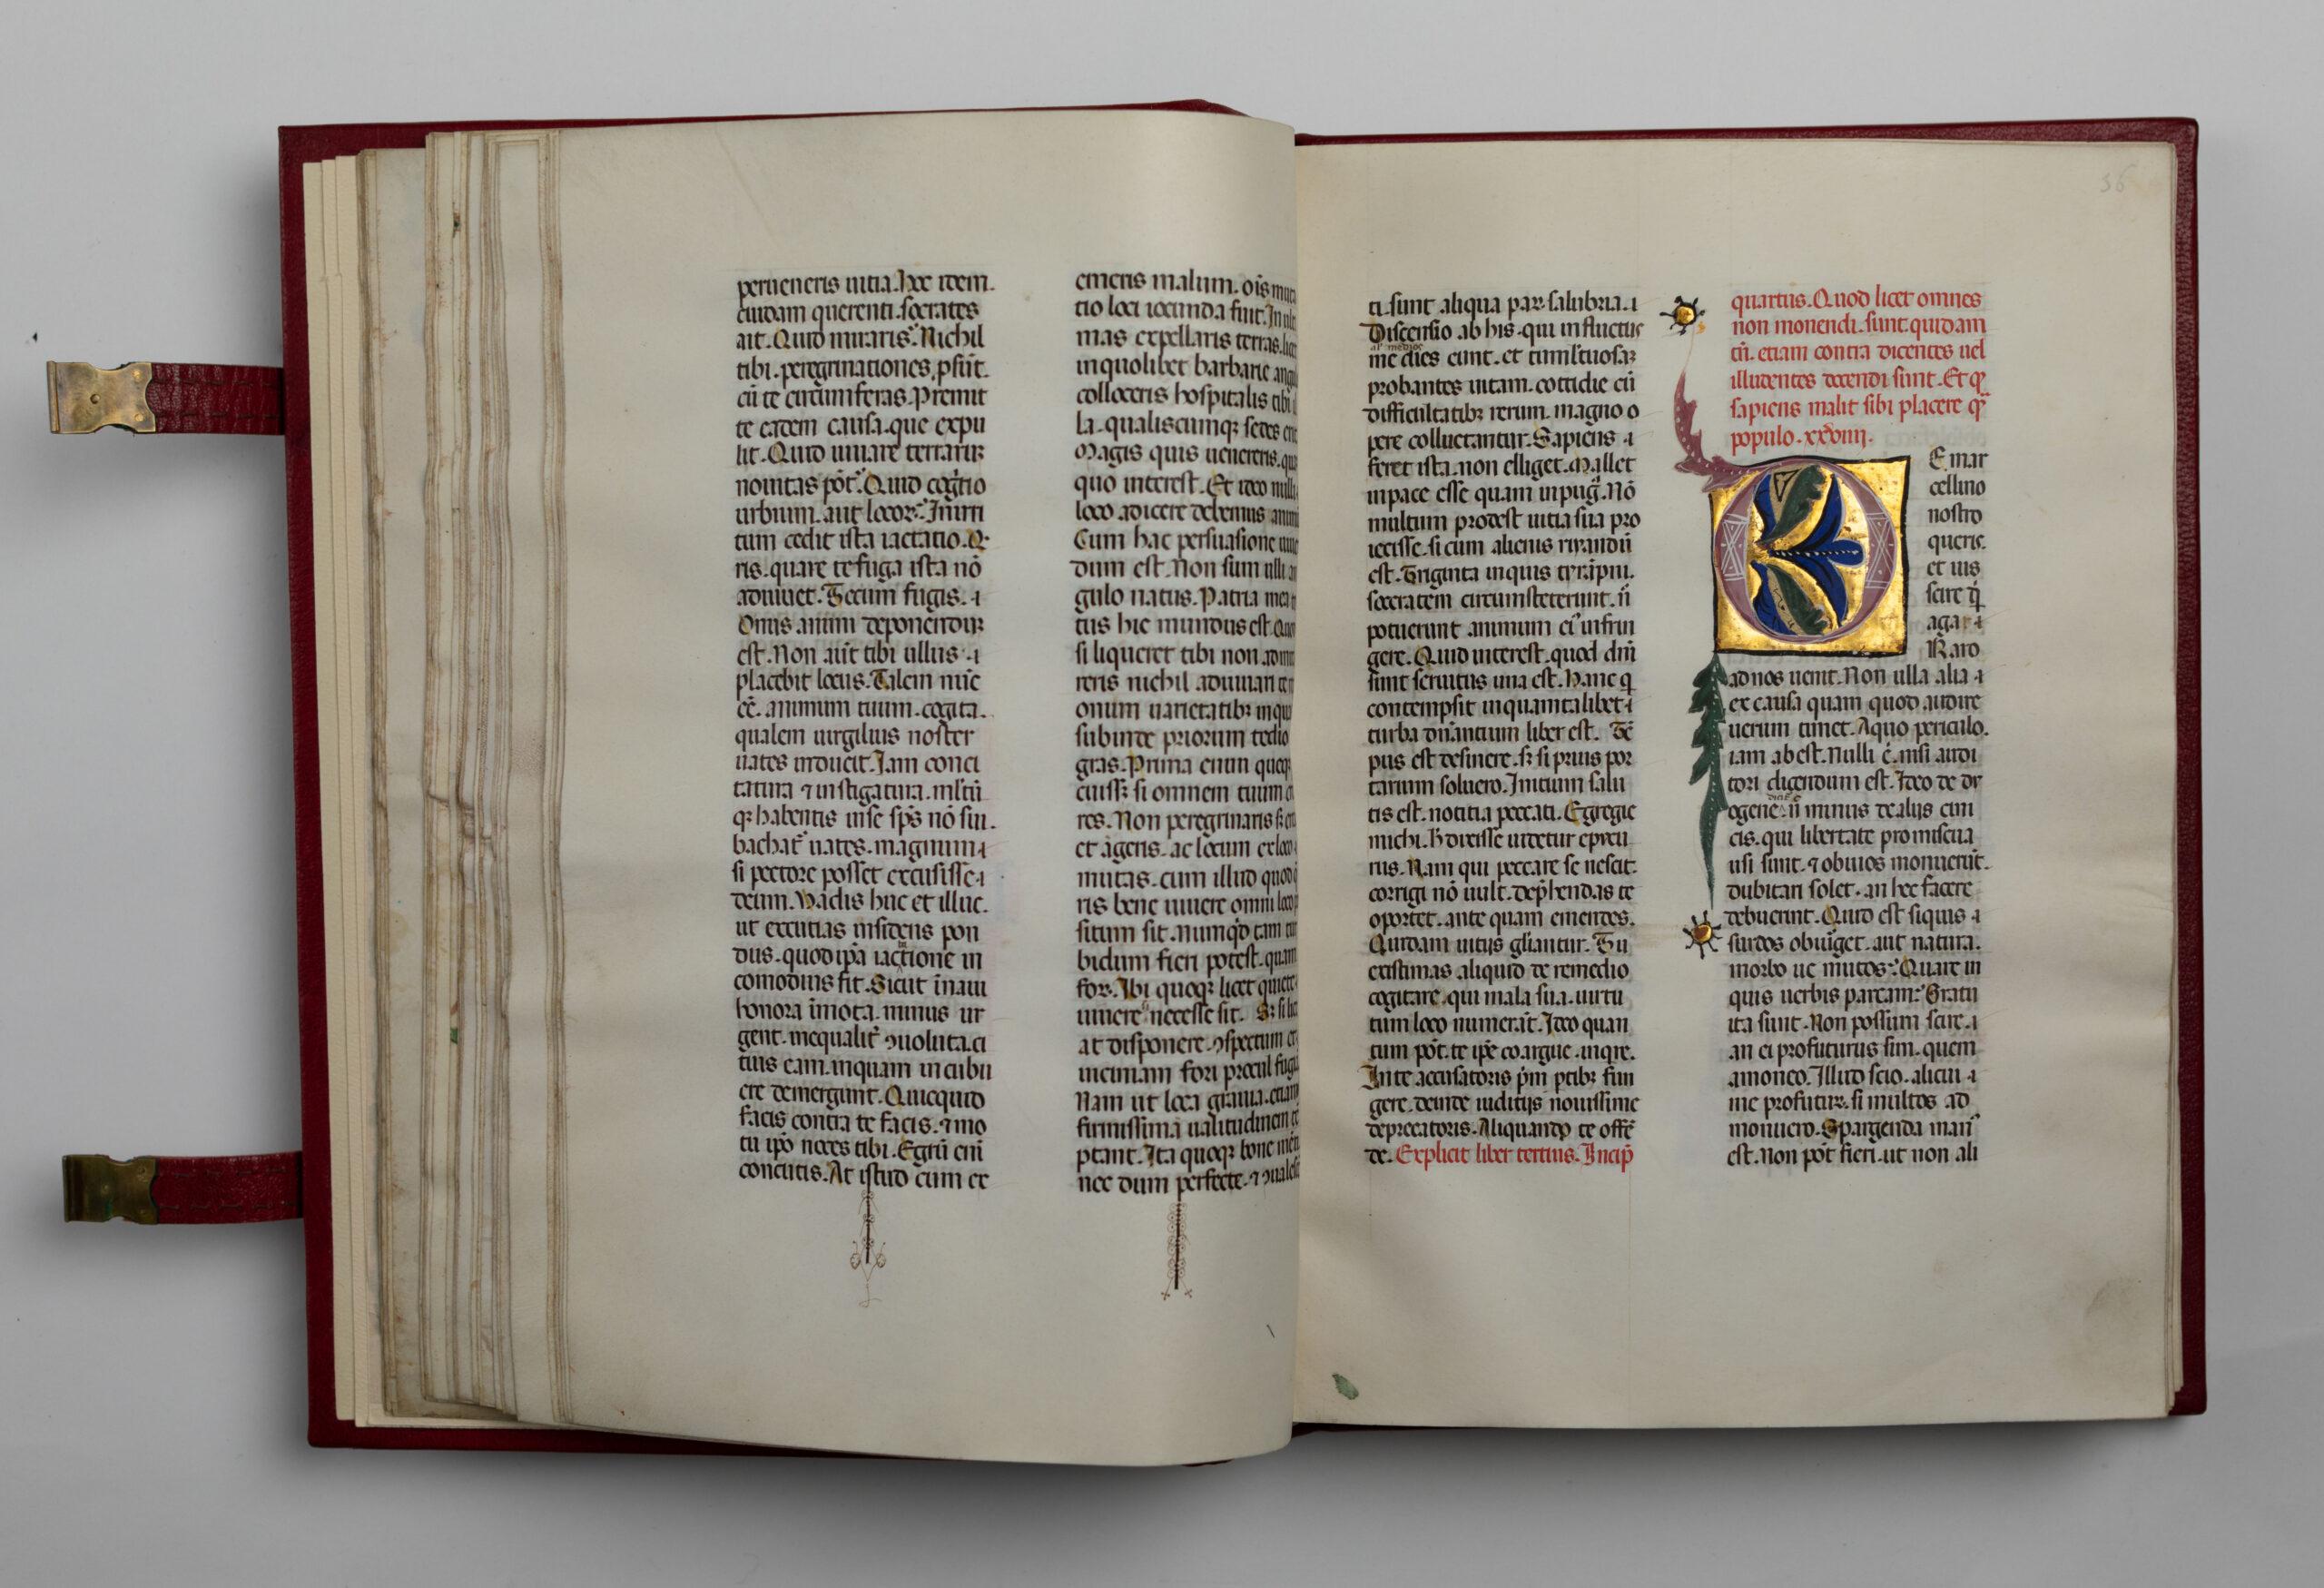 perueneris uitia. Hoc idem.
cuidam querenti. socrates
ait. Quid miraris. Nichil
tibi. peregrinationes, psūt.
cū te circūmferas. Premit
te eadem causa. que expu
lit. Quid iuuare terrarū
nouitas pōt. Quid cogitio
urbium. aut locorꝝ. Inirri
tum cedit ista iactatio. Q̄
ris. quare te fuga ista nō
adiuuet. Tecum fugis.
Onus animi deponendum
est. Non aūt tibi ullus
placebit locus. Talem nūc
eē. animum tuum. cogita.
qualem uirgilius noster
uates inducit. Iam conci
tatura ⁊ instigatura. mltū
qꝫ habentis inse sp̄s nō sui.
bachat uates. magnum
si pectore posset excusisse
deum. Uadis huc et illuc.
ut excutias insidens pon
dus. quod ip̄a iactione in
comodius fit. Sicut īnaui
honora īmota. minus ur
gent. inequalit̄ ꝯuoluta. ci
tius eam. inquam incubu
ere demergunt. Quicquid
facis contra te facis. ⁊ mo
tu ip̄o noces tibi. Egrū enī
concutis. At istud cum ex
emeris malum. oīs muta
tio loci iocunda fiet. In ulti
mas expellaris terras. licet
inquolibet barbarie angu
colloceris hospitalis tibi il
la. qualiscumqꝫ sedes erit
Magis quis ueneris. qua
quo interest. Et ideo nulli
loco adicere debemus animū
Cum hac persuasione uiuē
dum est. Non sum ulli an
gulo natus. Patria mea to
tus hic mundus est. Quod
si liqueret tibi non admi
reris nichil adiuuari te
onum uarietatibꝫ inquas
subinde priorum tedio
gras. Prima enim queqꝫ
cuissꝫ si omnem tuum
res. Non peregrinaris sꝫ
et ageris. ac locum ex loco
mutas. cum illud quod q̄
ris bene uiuere omni loco po
situm sit. nunqd̄ tam tur
bidum fieri potest. quam
for. Ibi quoqꝫ licet quiete
uiuere necesse sit. Sꝫ si lice
at disponere. ꝯspectum et
uiciniam fori procul fugiā
Nam ut loca grauia. etiam
firmissimā ualitudinem tē
ptant. Ita quoqꝫ bone mēti
nec dum perfecte. ⁊ ꝯualesc
36
ti. sunt aliqua parꝫ salubria.
Discensio ab his. qui in fluctus
al' medios
me dies eunt. et tumltuosaꝫ
probantes uitam. cottidie cū
difficultatibꝫ rerum. magno o
pere colluctantur. Sapiens
feret ista. non elliget. Mallet
inpace esse quam inpug̃. Nō
multum prodest uitia sua pro
iecisse. si cum alienis rixandū
est. Triginta inquis tyrāpni.
socratem circumsteterunt. n̄
potuerunt animum ei' infrin
gere. Quid interest. quod dn̄i
sunt seruitus una est. Hanc q̄
contempsit inquamtalibet
turba dn̄antium liber est. Tē
pus est desinere. sꝫ si prius por
tarium soluero. Initium salu
tis est. notitia peccati. Egregie
michi. h̄ dixisse uidetur epycu
rus. Nam qui peccare se nescit.
corrigi nō uult. dep̄hendas te
oportet. ante quam emendes.
Quidam uitijs gl̄iantur. Tu
existimas aliquid de remedio
cogitare. qui mala sua. uirtu
tum loco numerāt. Ideo quan
tum pōt. te ip̄e coargue. inqre.
In te accusatoris pm̄ ptibꝫ fun
gere. deinde iuditijs nouissime
deprecatoris. Aliquando te offē
de. Explicit liber tertius. Incip̄
quartus. Quod licet omnes
non monendi. sunt quidam
tn̄. etiam contra dicentes uel
illudentes docendi sunt. Et q̄
sapiens malit sibi placere q̄
populo. xxviiii.
E mar
cellino
nostro
queris.
et uis
scire q̄d
agat
Raro
ad nos uenit. Non ulla alia
ex causa quam quod audire
uerum timet. Aquo periculo.
iam abest. Nulli ē. nisi audi
tori dicendum est. Ideo de dy
ogene. n̄ minus de alijs cini
cis. qui libertate promiscua
usi sunt. ⁊ obuios monuerūt.
dubitari solet. an hec facere
debuerint. Quid est siquis
surdos obiurget. aut natura.
morbo ue mutos. Quare in
quis uerbis parcam. Gratu
ita sunt. Non possum scire.
an ei profuturus sim. quem
amoneo. Illud scio. alicui
me profuturꝫ. si multos ad
monuero. Spargenda man'
est. Non pōt fieri. ut non ali